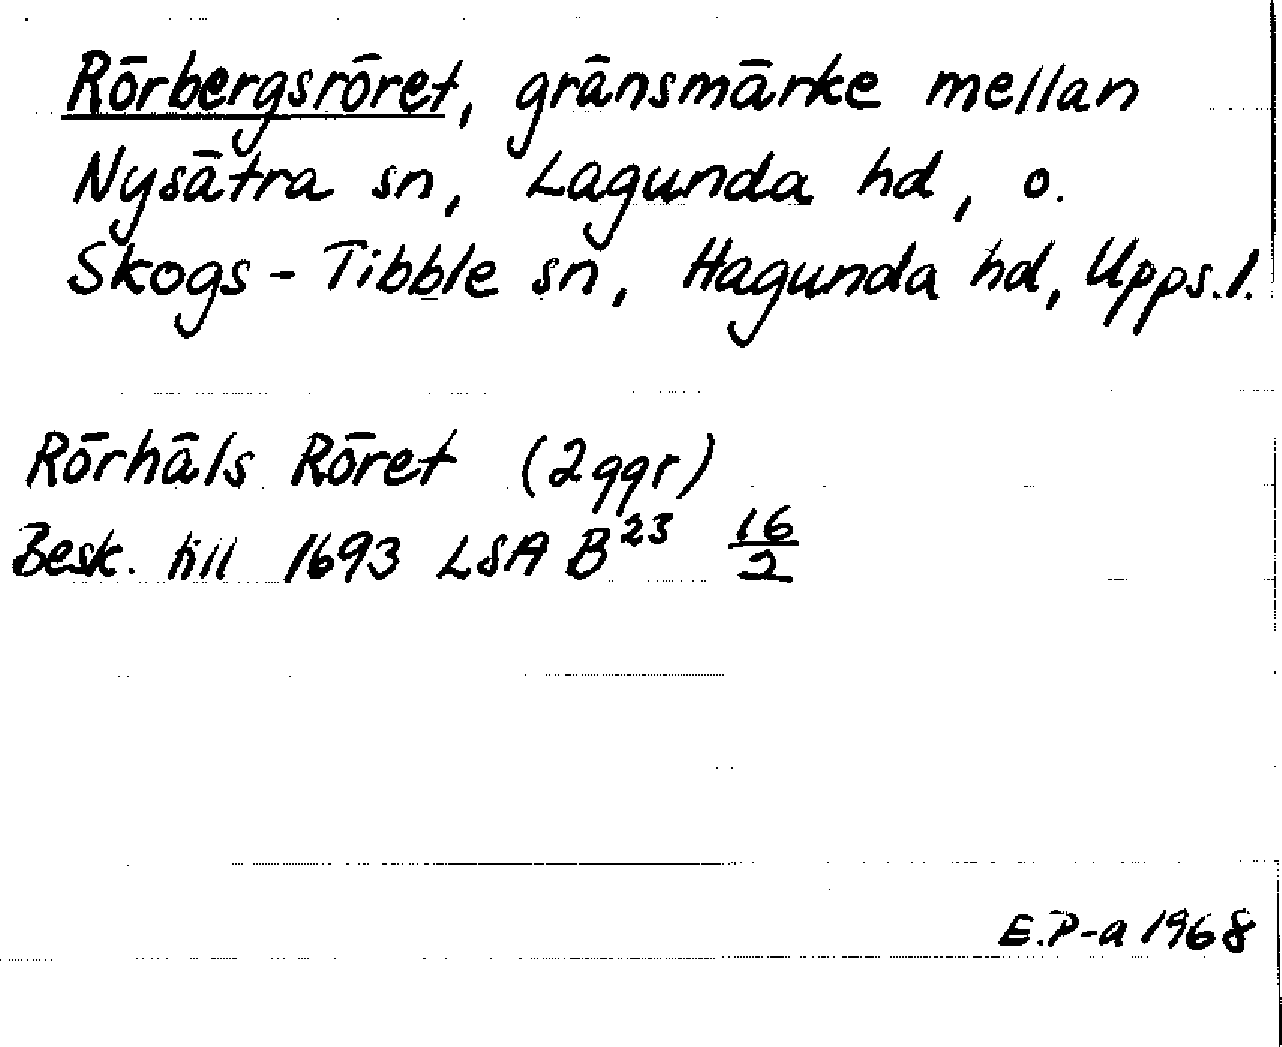 Rörbergsröret, gränsmärke mellan
Nysätra sn, Lagunda hd, o.
Skogs-Tibble sn, Hagunda hd, Upps.l.
Rörhäls Röret (2ggr)
Besk. till 1693 LSA B²³ 16/2
E.P-a 1968